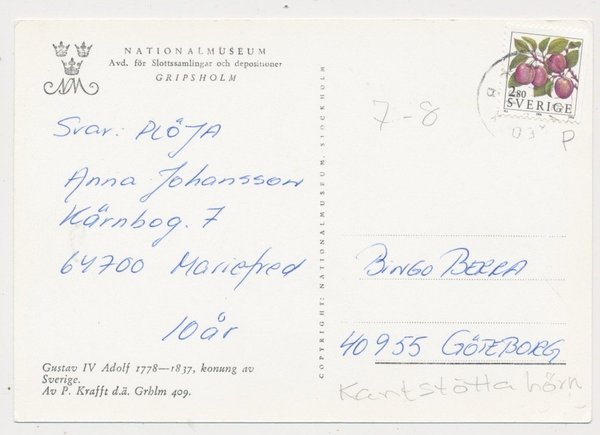 NATIONALMUSEUM
Avd. för Slottssamlingar och depositioner
GRIPSHOLM
2.80
SVERIGE
7-8
P
Svar: PLÖJA
Anna Johansson
Kärnbog. 7
64700 Mariefred
10 år
COPYRIGHT: NATIONALMUSEUM, STOCKHOLM
BINGO BERRA
40955 GÖTEBORG
Kantstötta hörn
Gustav IV Adolf 1778—1837, konung av
Sverige.
Av P. Krafft d.ä. Grhlm 409.